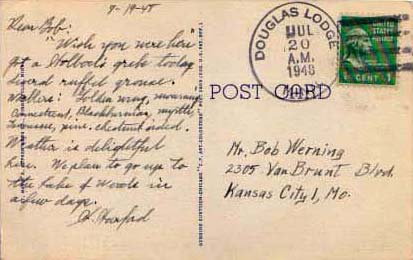 7-19-48
Dear Bob:
"Wish you were here"
Got a Holboell's grebe today
Several ruffed grouse.
Warblers: Golden wing, mourning
Connecticut, Blackburnian, myrtle,
pine, chestnut sided.
Weather is delightful
here. We plan to go up to
the Lake of Woods in
a few days.
DOUGLAS LODGE
JUL
20
A.M.
1948
MINN.
UNITED
STATES
1 CENT 1
POST CARD
Mr. Bob Werning
2305 Van Brunt Blvd.
Kansas City 1, Mo.